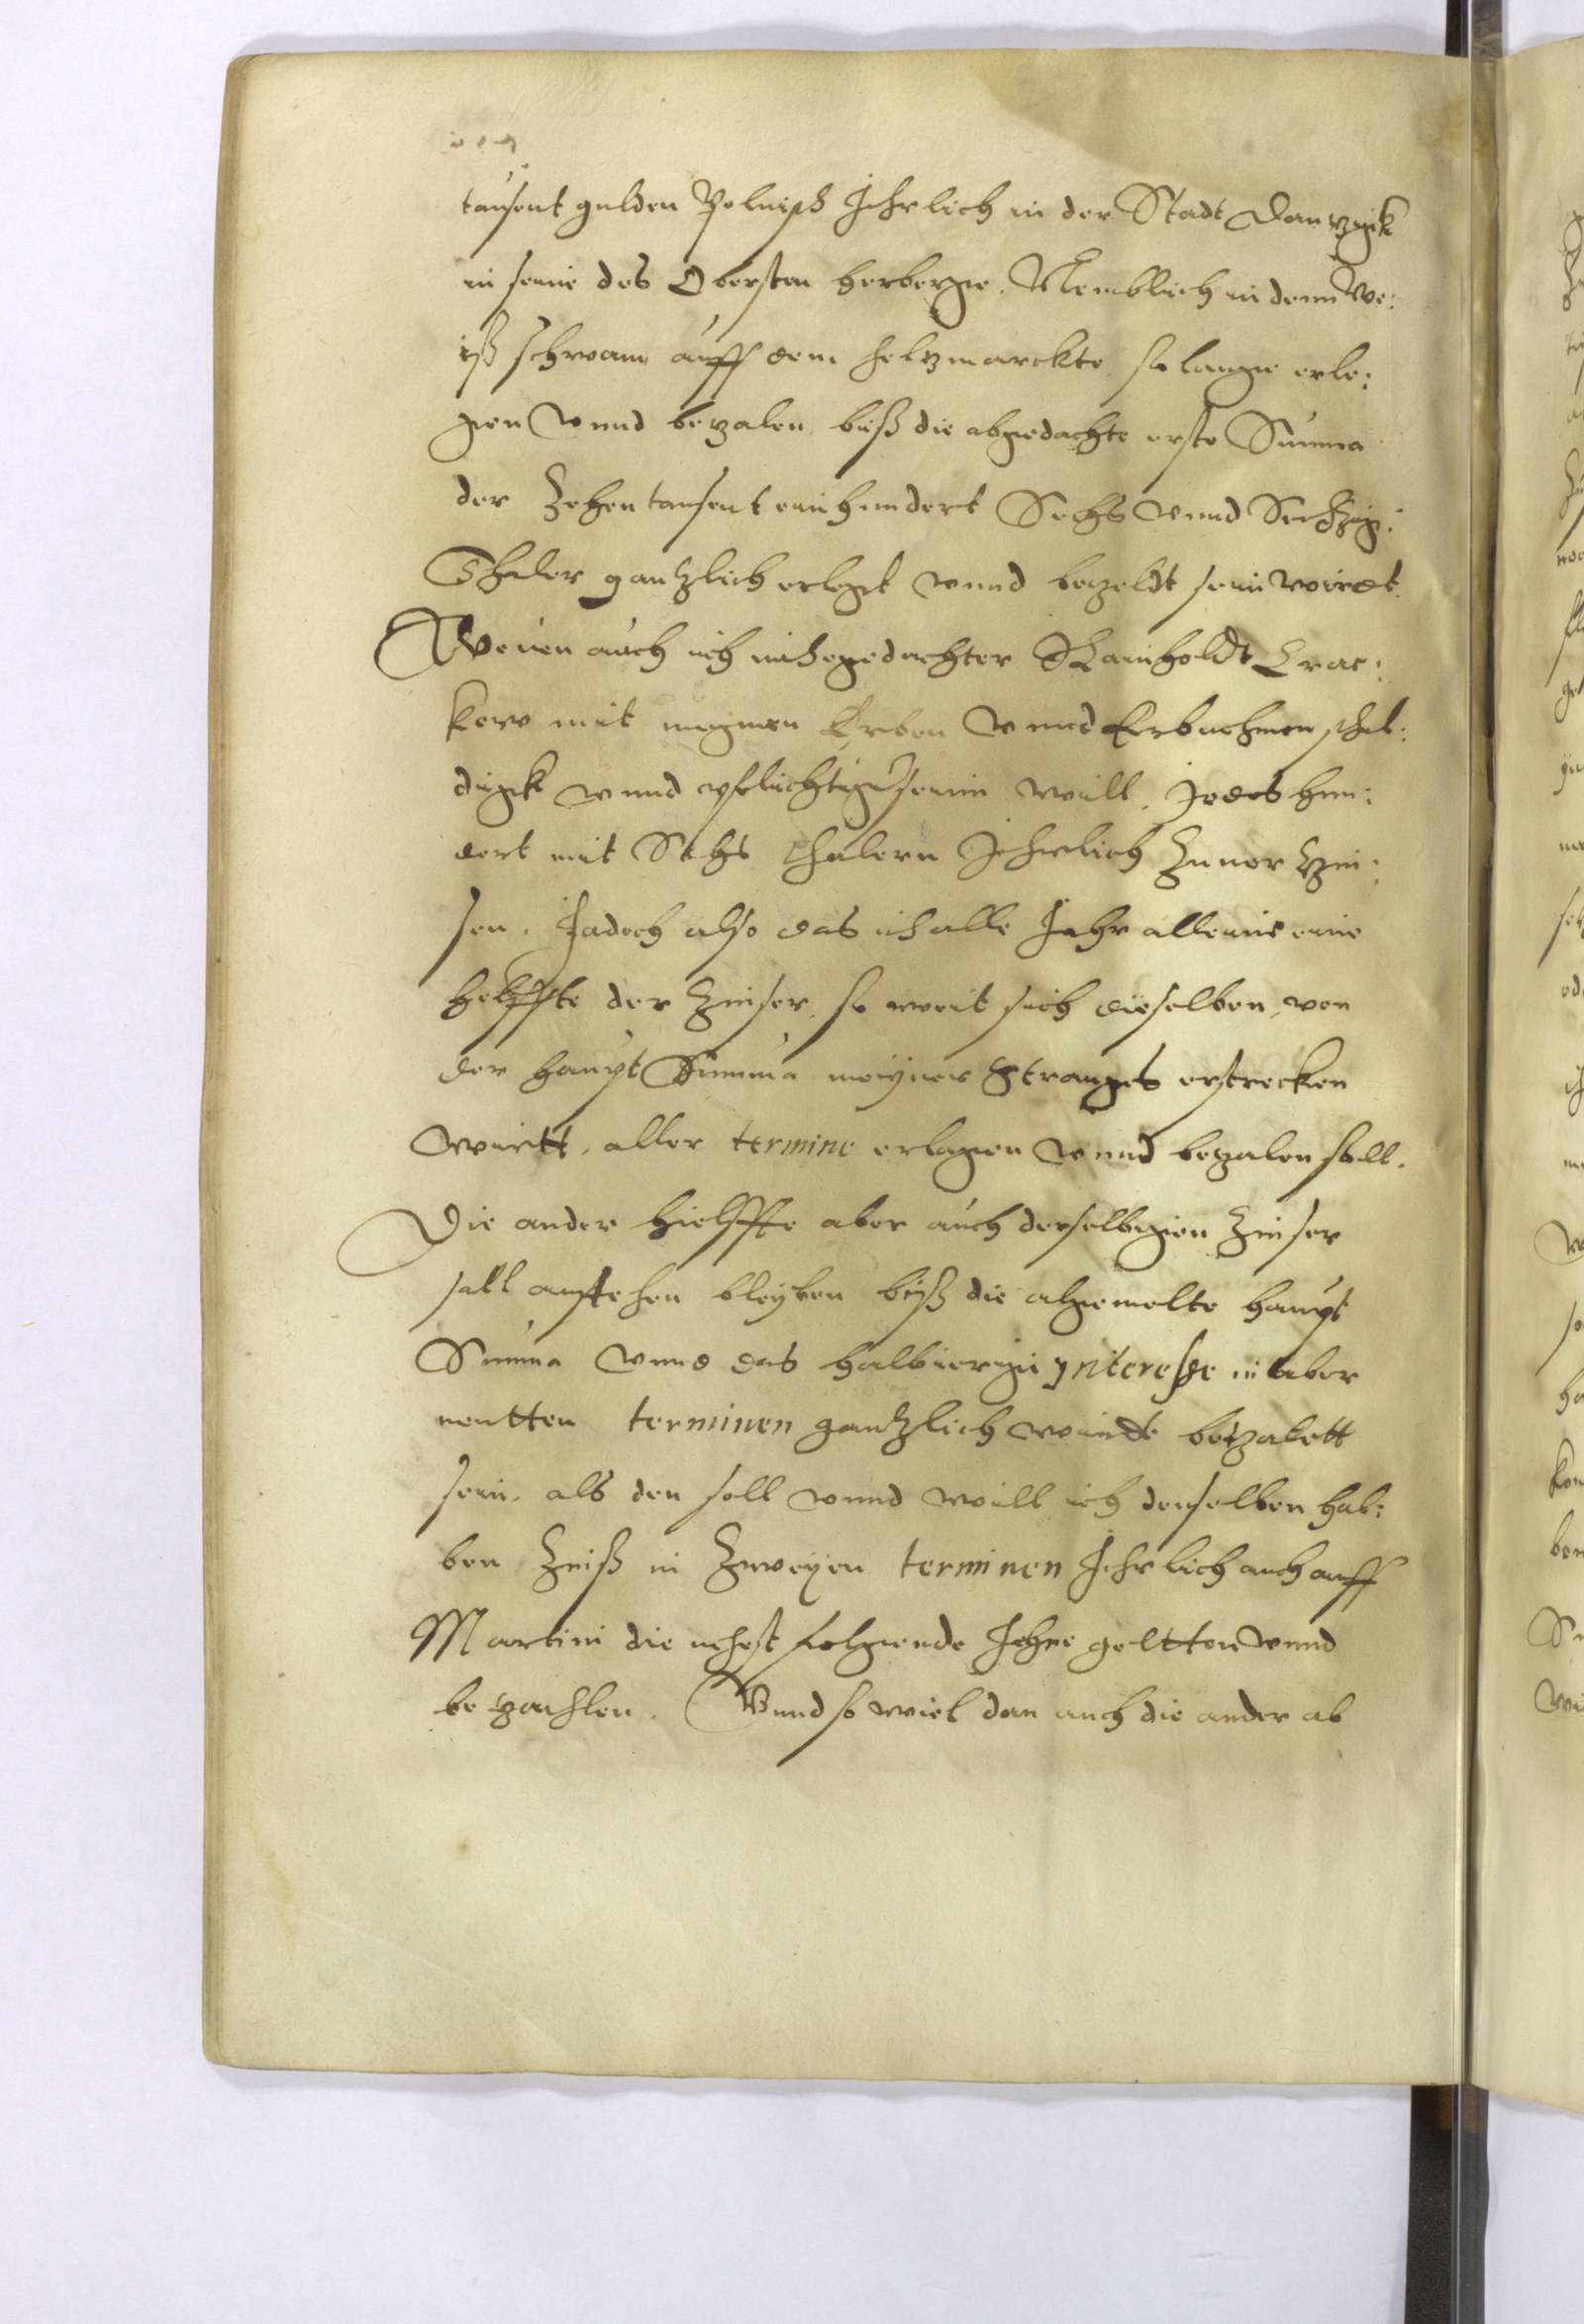 tausent gulden Polnisch Jehrlich in der Stadt Danzigk
in seine des Obersten herberge. Nemblich in dem We:
iß schwann auff dem holtzmarckte so lange erle:
gen vnnd betzalen. biß die abgedachte erste Summa
der Zehentausent einhundert Sechs vnnd Sechtzig:
Thaler gantzlich erlegt vnnd bezeldt sein wirdt.
Weilen auch ich Reinholdt Crac:
kow mit meynen Erben vnnd Erbnehmen schul:
digk vnnd pflichtig seinn will. Jedes hun:
dert mit Sechs thalern Jehrlich Zuuor Zin:
sen. Jadoch also das ich alle Jahr alleine eine
helffte der Zinser. so weit sich dieselben, von
der haupt Summa meynes Stranges erstrecken
wirtt, aller termine erlagen vnnd betzalen soll.
Die ander hielffte aber auch derselbigen Zinser
sall anstehen bleyben biß die abgemelte haupt
Summa vnnd das halbierige ynteresse in aber
nentten terminen gantzlich wirdt betzalett
sein. als den soll vnnd will ich denselben hal:
ben Zinß in Zweyen terminen Jehrlich auch auff
Martini die nehest folgende Jehre geltten vnnd
bezachlen. Vnnd so viel dan auch die ander ab